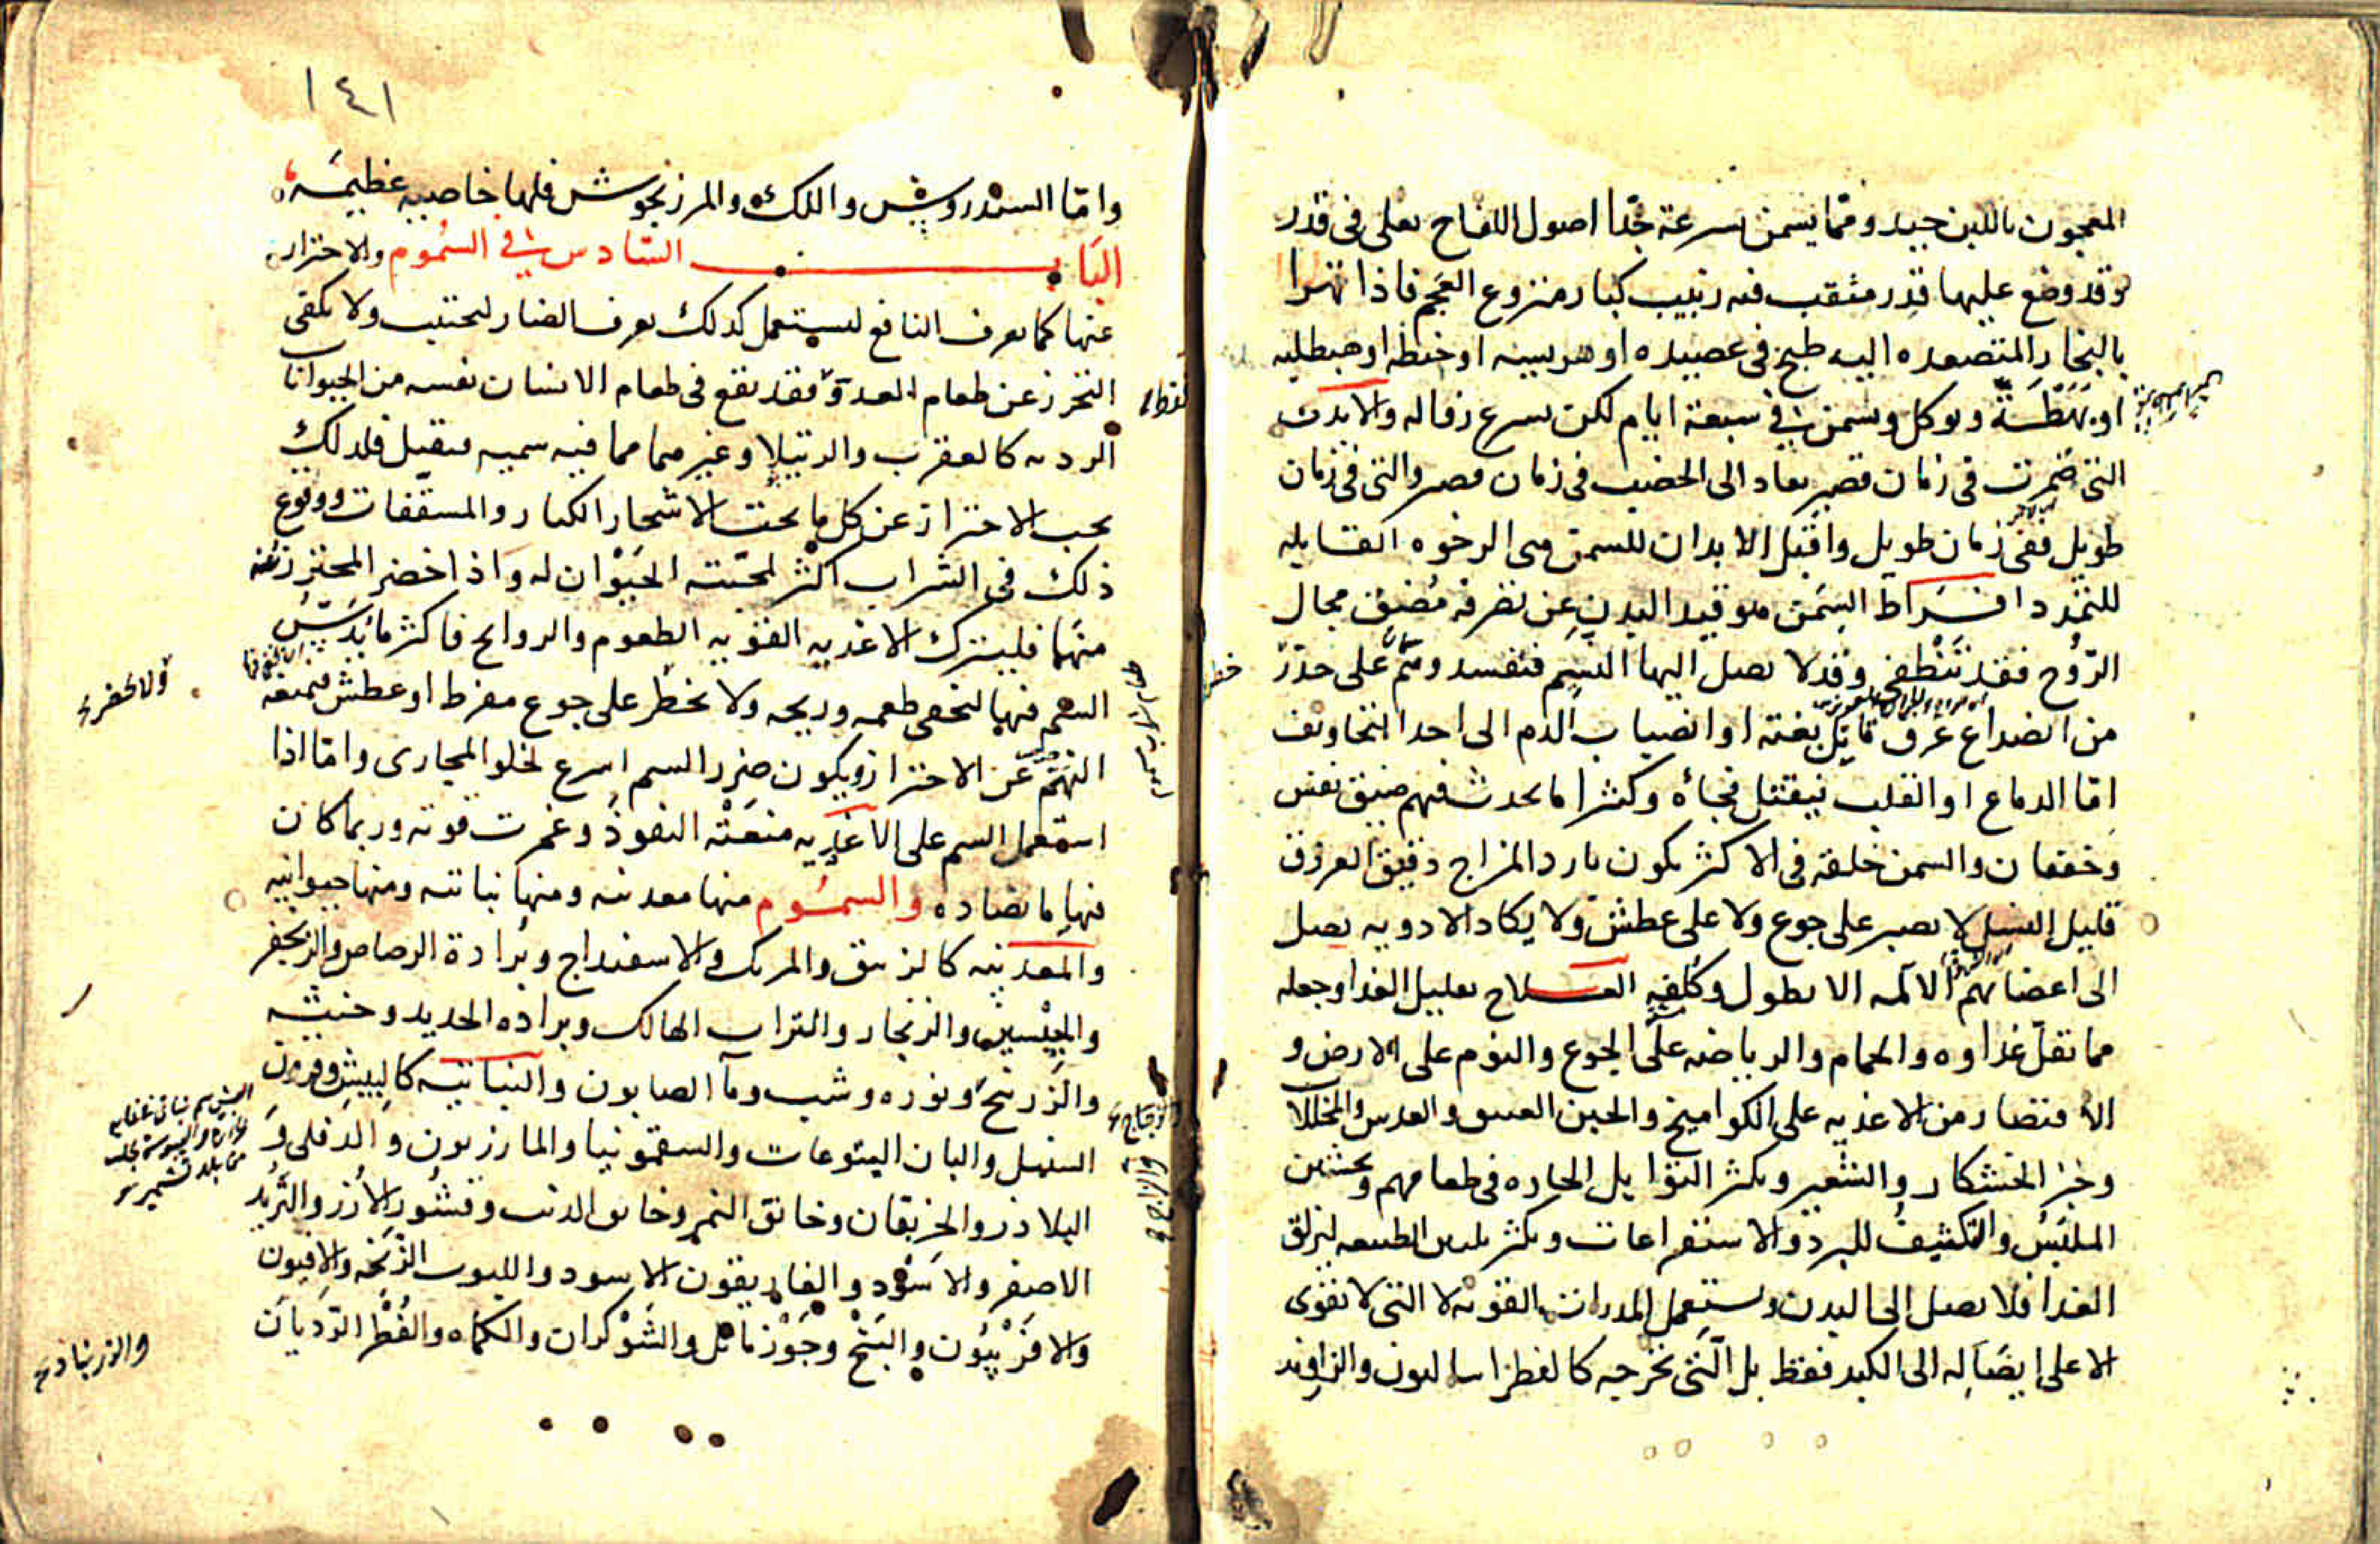 المعجون باللبن جيد ومما يسمن بسرعة جدا اصول اللفاح يغلى فى قدر
وقد وضع عليها قدر مثقب فيه زبيب كبار منزوع العجم فاذا تهرا
بالبخار المتصعده اليه طبخ فى عصيده او هريسه او حنطه او
او بهطة ويوكل ويسمن فى سبعة ايام لكن يسرع زواله والابدان
التى ضمرت فى زمان قصير يعاد الى الخصب فى زمان قصير والتى فى زمان
طويل ففى زمان طويل واقبل الابدان للسمن هى الرخوه القابله
للتمدد افراط السمن هو قيد البدن عن تصرفه مضيق مجال
الروح فقد تنطفى وقد لا يصل اليها النسيم فتفسد وهم على حذر
من انصداع عرق قاتل بغتة او انصباب الدم الى احد التجاويف
اما الدماغ او القلب فيقتل فجأة وكثيرا ما يحدث فيهم ضيق نفس
وخفقان والسمن خلقه فى الاكثر يكون بارد المزاج دقيق العروق
قليل النسل لا يصبر على جوع ولا على عطش ولا يكاد الادويه تصل
الى اعضائهم الالمه الا بطول وكلفه العلاج تقليل الغذا وجعله
مما تقل غذاوه والحمام والرياضه على الجوع والنوم على الارض و
الاقتصار من الاغذيه على الكواميخ والجبن العتيق والعدس والمخللات
وخبز الخشكار والشعير ويكثر التوابل الحاره فى طعامهم وتخشين
الملبس والتكشيف للبرد والاستفراغات ويكثر تليين الطبيعه ليزلق
الغدا فلا يصل الى البدن ويستعمل المدرات القويه لا التى لا تقوى
الا على ايصاله الى الكبد فقط بل التى تخرجه كالفطراساليون والزراوند
١٤١
واما السندروس واللك والمرزنجوش فلها خاصيه عظيمه
الباب السادس فى السموم والاحتراز
عنها كما يعرف النافع ليستعمل كذلك يعرف الضار ليجتنب ولا يكفى
التحرز عن طعام العدو فقد يقع فى طعام الانسان نفسه من الحيوانات
الرديه كالعقرب والرتيلا وغيرهما مما فيه سميه فيقتل فلذلك
يجب الاحتراز عن كل ما تحت الاشجار الكبار والمسقفات ووقوع
ذلك فى الشراب اكثر لمحبته الحيوان له واذا حضر المحترز عنه
منها فليترك الاغذيه القويه الطعوم والروايح فاكثر ما يدس
السم فيها ليخفى طعمه وريحه ولا يحضر على جوع مفرط او عطش فيمنعه
ولا يحضر
النهم عن الاحتراز ويكون ضرر السم اسرع لخلو المجارى واما اذا
استعمل السم على الاغذيه منعته النفوذ وغمرت قوته وربما كان
فيها ما يضاده والسموم منها معدنيه ومنها نباتيه ومنها حيوانيه
والمعدنيه كالزيبق والمرتك والاسفيداج وبرادة الرصاص والزنجفر
والجبسين والزنجار والتراب الهالك وبراده الحديد وخبثه
والزرنيخ ونوره وشب ومآ الصابون والنباتيه كالبيش وقرون
السنبل والبان اليتوعات والسقمونيا والمازريون والدفلى و
البلاذر والخربقان وخانق النمر وخانق الذئب وقشور الارز والتربد
الاصفر والاسود والغاريقون الاسود والليوب الزنخه والافيون
والافربيون والبنج وجوز ماثل والشوكران والكماه والفطر الرديان